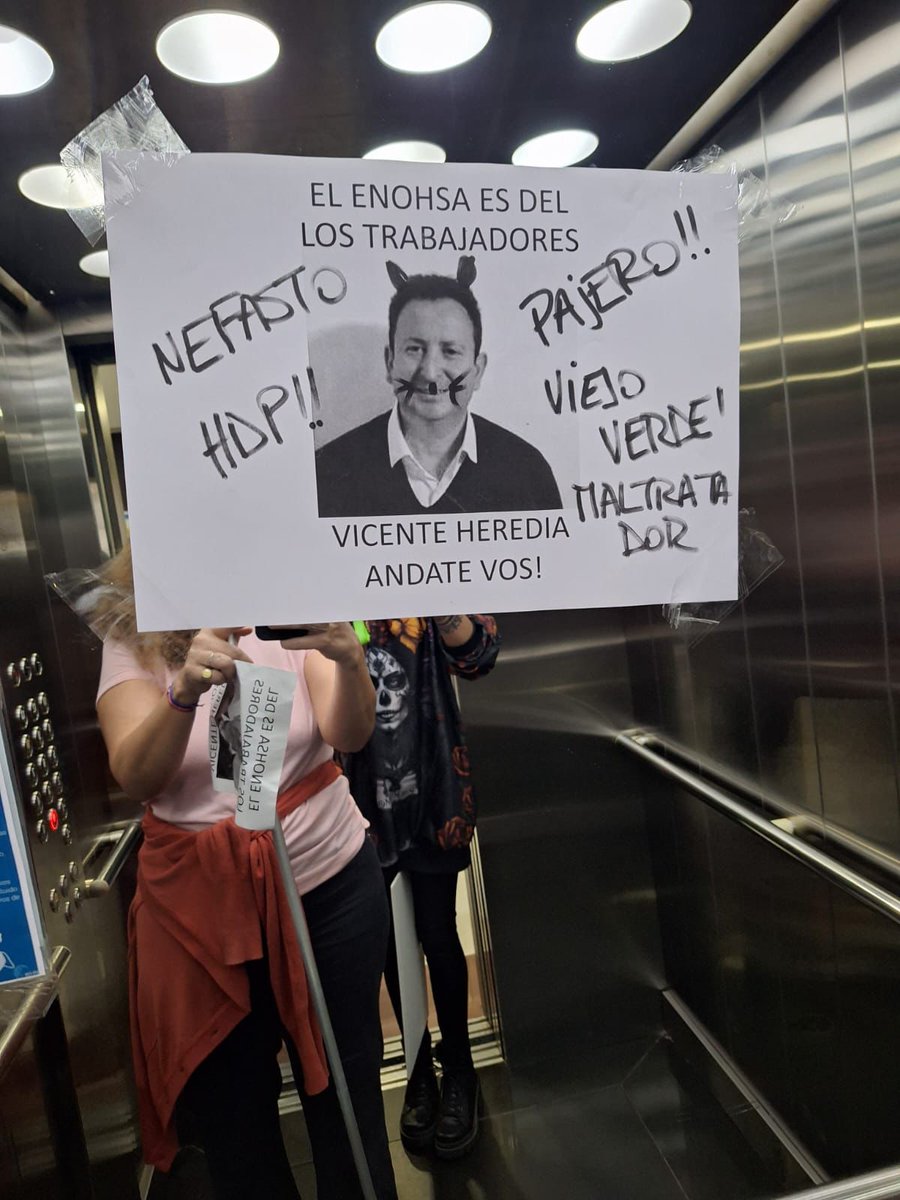 EL ENOHSA ES DEL
LOS TRABAJADORES
NEFASTO
HDP!!
PAJERO!!
VIEJO
VERDE!
MALTRATA
DOR
VICENTE HEREDIA
ANDATE VOS!
EL ENOHSA ES DEL
LOS TRABAJADORES